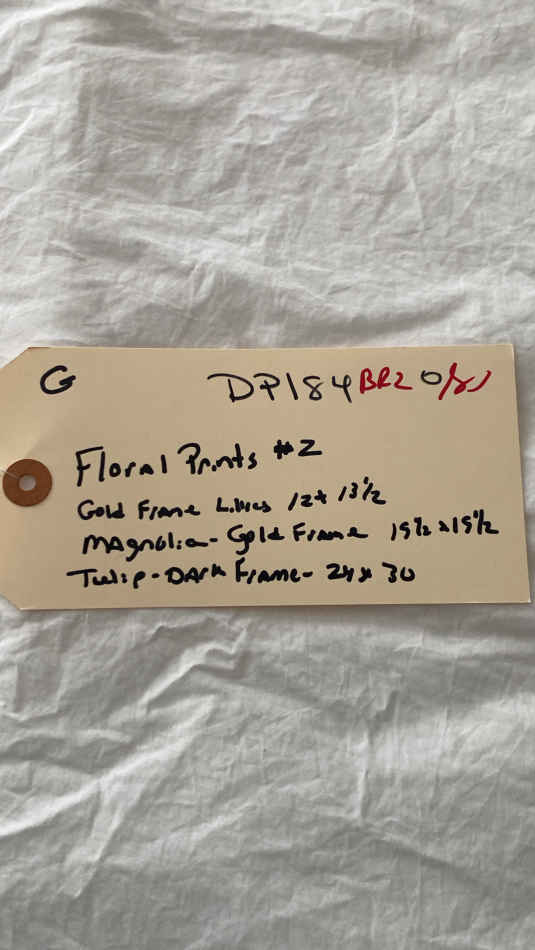 G DP184 BR2
Floral Prints #2
Gold Frame Lilies 12x 13½
Magnolia- Gold Frame 19½ x 19½
Tulip-Dark Frame- 24x 30